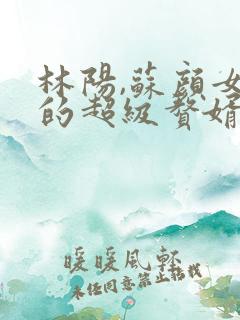 林陽,蘇顔女
的超級贅婿
暖暖風軒
未任同意禁止轉載